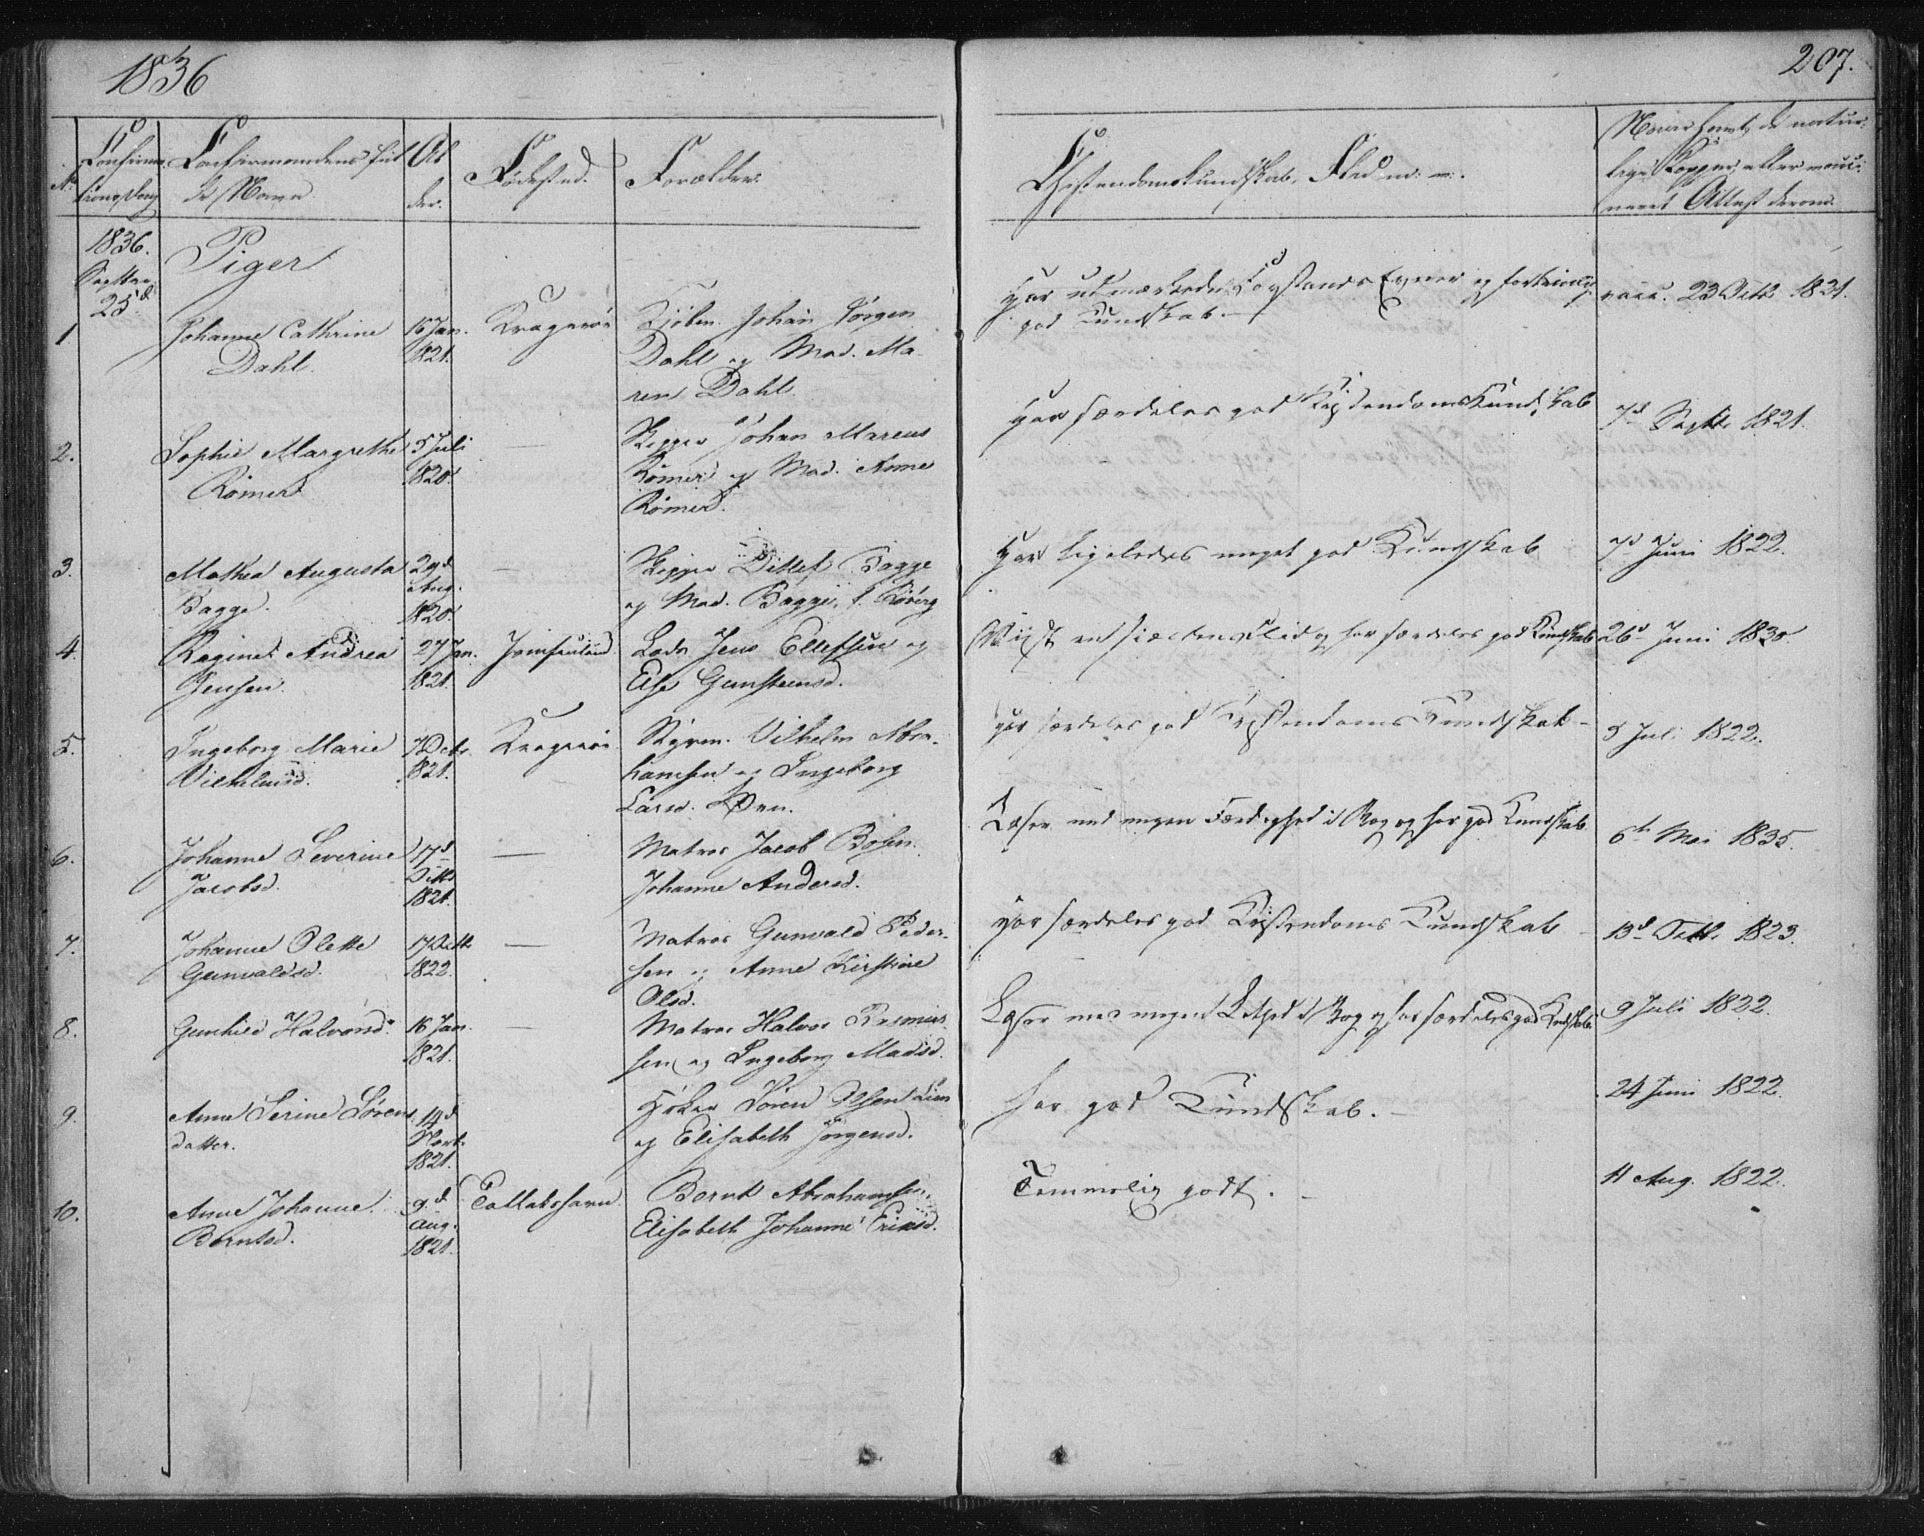 1836
207.
No Confirmations Dag
Confirmandens fulde Navn
Alder.
Födested.
Forældre.
Christendomskundskab, Flid m: m:.
Naar havt de naturlige Kopper eller vaccineret Attest derom.
1836. Septbr 25d
Piger
1
Johanne Cathrine
Dahl.
16 Jan.
1821.
Kragerøe
Kjøbm. Johan Jørgen
Dahl og Mad. Ma-
ren Dahl.
Har udmærkede Forstands Evner og fortrinlig
god Kundskab. —
vacc. 23 Octb 1821.
2.
Sophie Margrethe
Römer
5 Juli
1820.
—
Skipper Johan Marcus
Römer og Mad. Anne
Römer.
Har særdeles god Christendoms Kundskab
7d Septb. 1821.
3.
Mathea Augusta
Bagge.
29d
Aug.
1820.
—
Skipper Ditlef Bagge
og Mad. Bagge, f.
Har ligeledes meget god Kundskab
7d Juni 1822.
4.
Andrea
Jensen.
27 Jan.
1821.
Jomfruland
Lods Jens Ellefsen og
Else Gunsteensd.
Viist en Flid og har særdeles god Kundskab
26d Juni 1830
5.
Ingeborg Marie
Vilhelmsd.
7 Octbr.
1821.
Kragerøe
Styrm. Vilhelm Abra-
hamsen og Ingeborg
Larsd. Øen.
Har særdeles god Christendoms Kundskab —
5 Juli 1822.
6.
Johanne Severine
Jacobsd.
17d
Octb
1821.
—
Matros Jacob
Johanne Andersd.
Læser med megen Færdighed i Bog og har god Kundskab
6te Mai 1835.
7.
Johanne Olette
Gunvaldsd.
17 Octb
1822.
—
Matros Gunvald Peder-
sen og Anne Kirstine
Olsd.
Har særdeles god Christendoms Kundskab —
13d 1823.
8.
Gunhild Halvorsd.
16 Jan.
1821.
—
Matros Halvor Rasmus-
sen og Ingeborg Madsd.
Læser med megen i Bog og har særdeles god Kundskab
9 Juli 1822.
9.
Anne Serine Sørens
datter.
14d
Novb.
1821.
Høker Søren Olsen
og Elisabeth Jörgensd.
har god Kundskab. —
24 Juni 1822.
10.
Anne Johanne
Berntsd.
9d
Aug.
1821.
Tallakshavn
Bernt Abrahamsen,
Elisabeth Johanne Eriksd.
Temmelig godt. —
11 Aug. 1822.